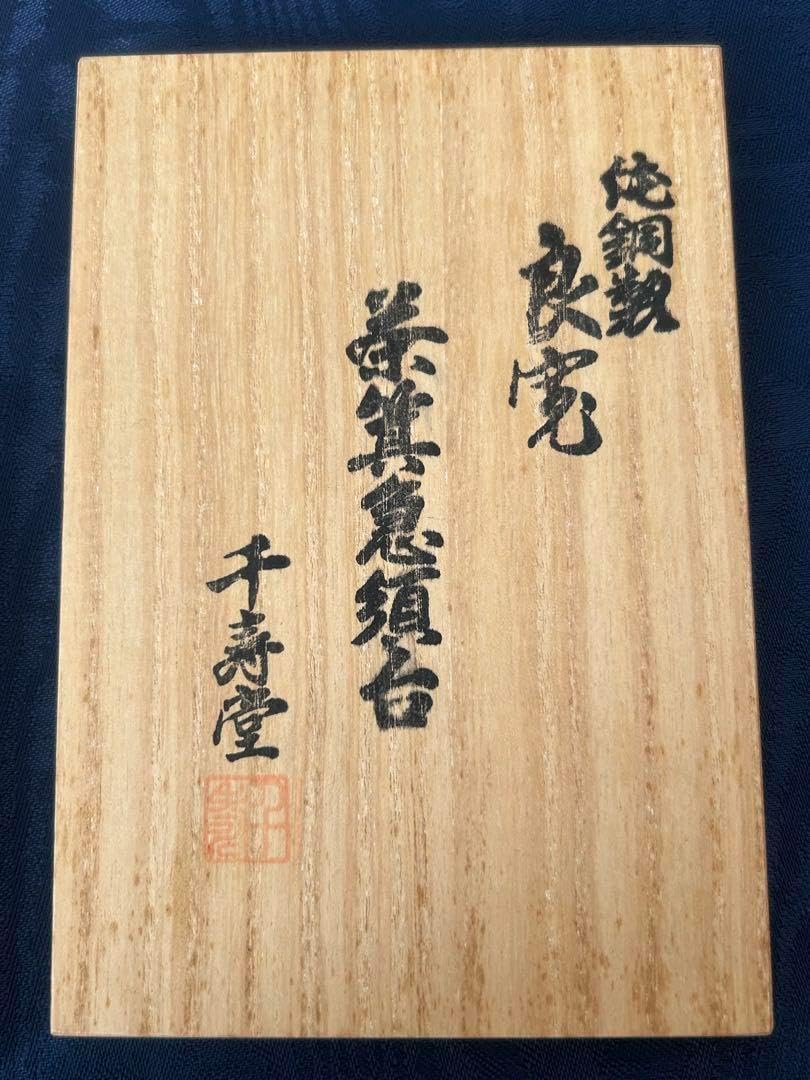 純銅製
良寛
茶箕急須台
千寿堂